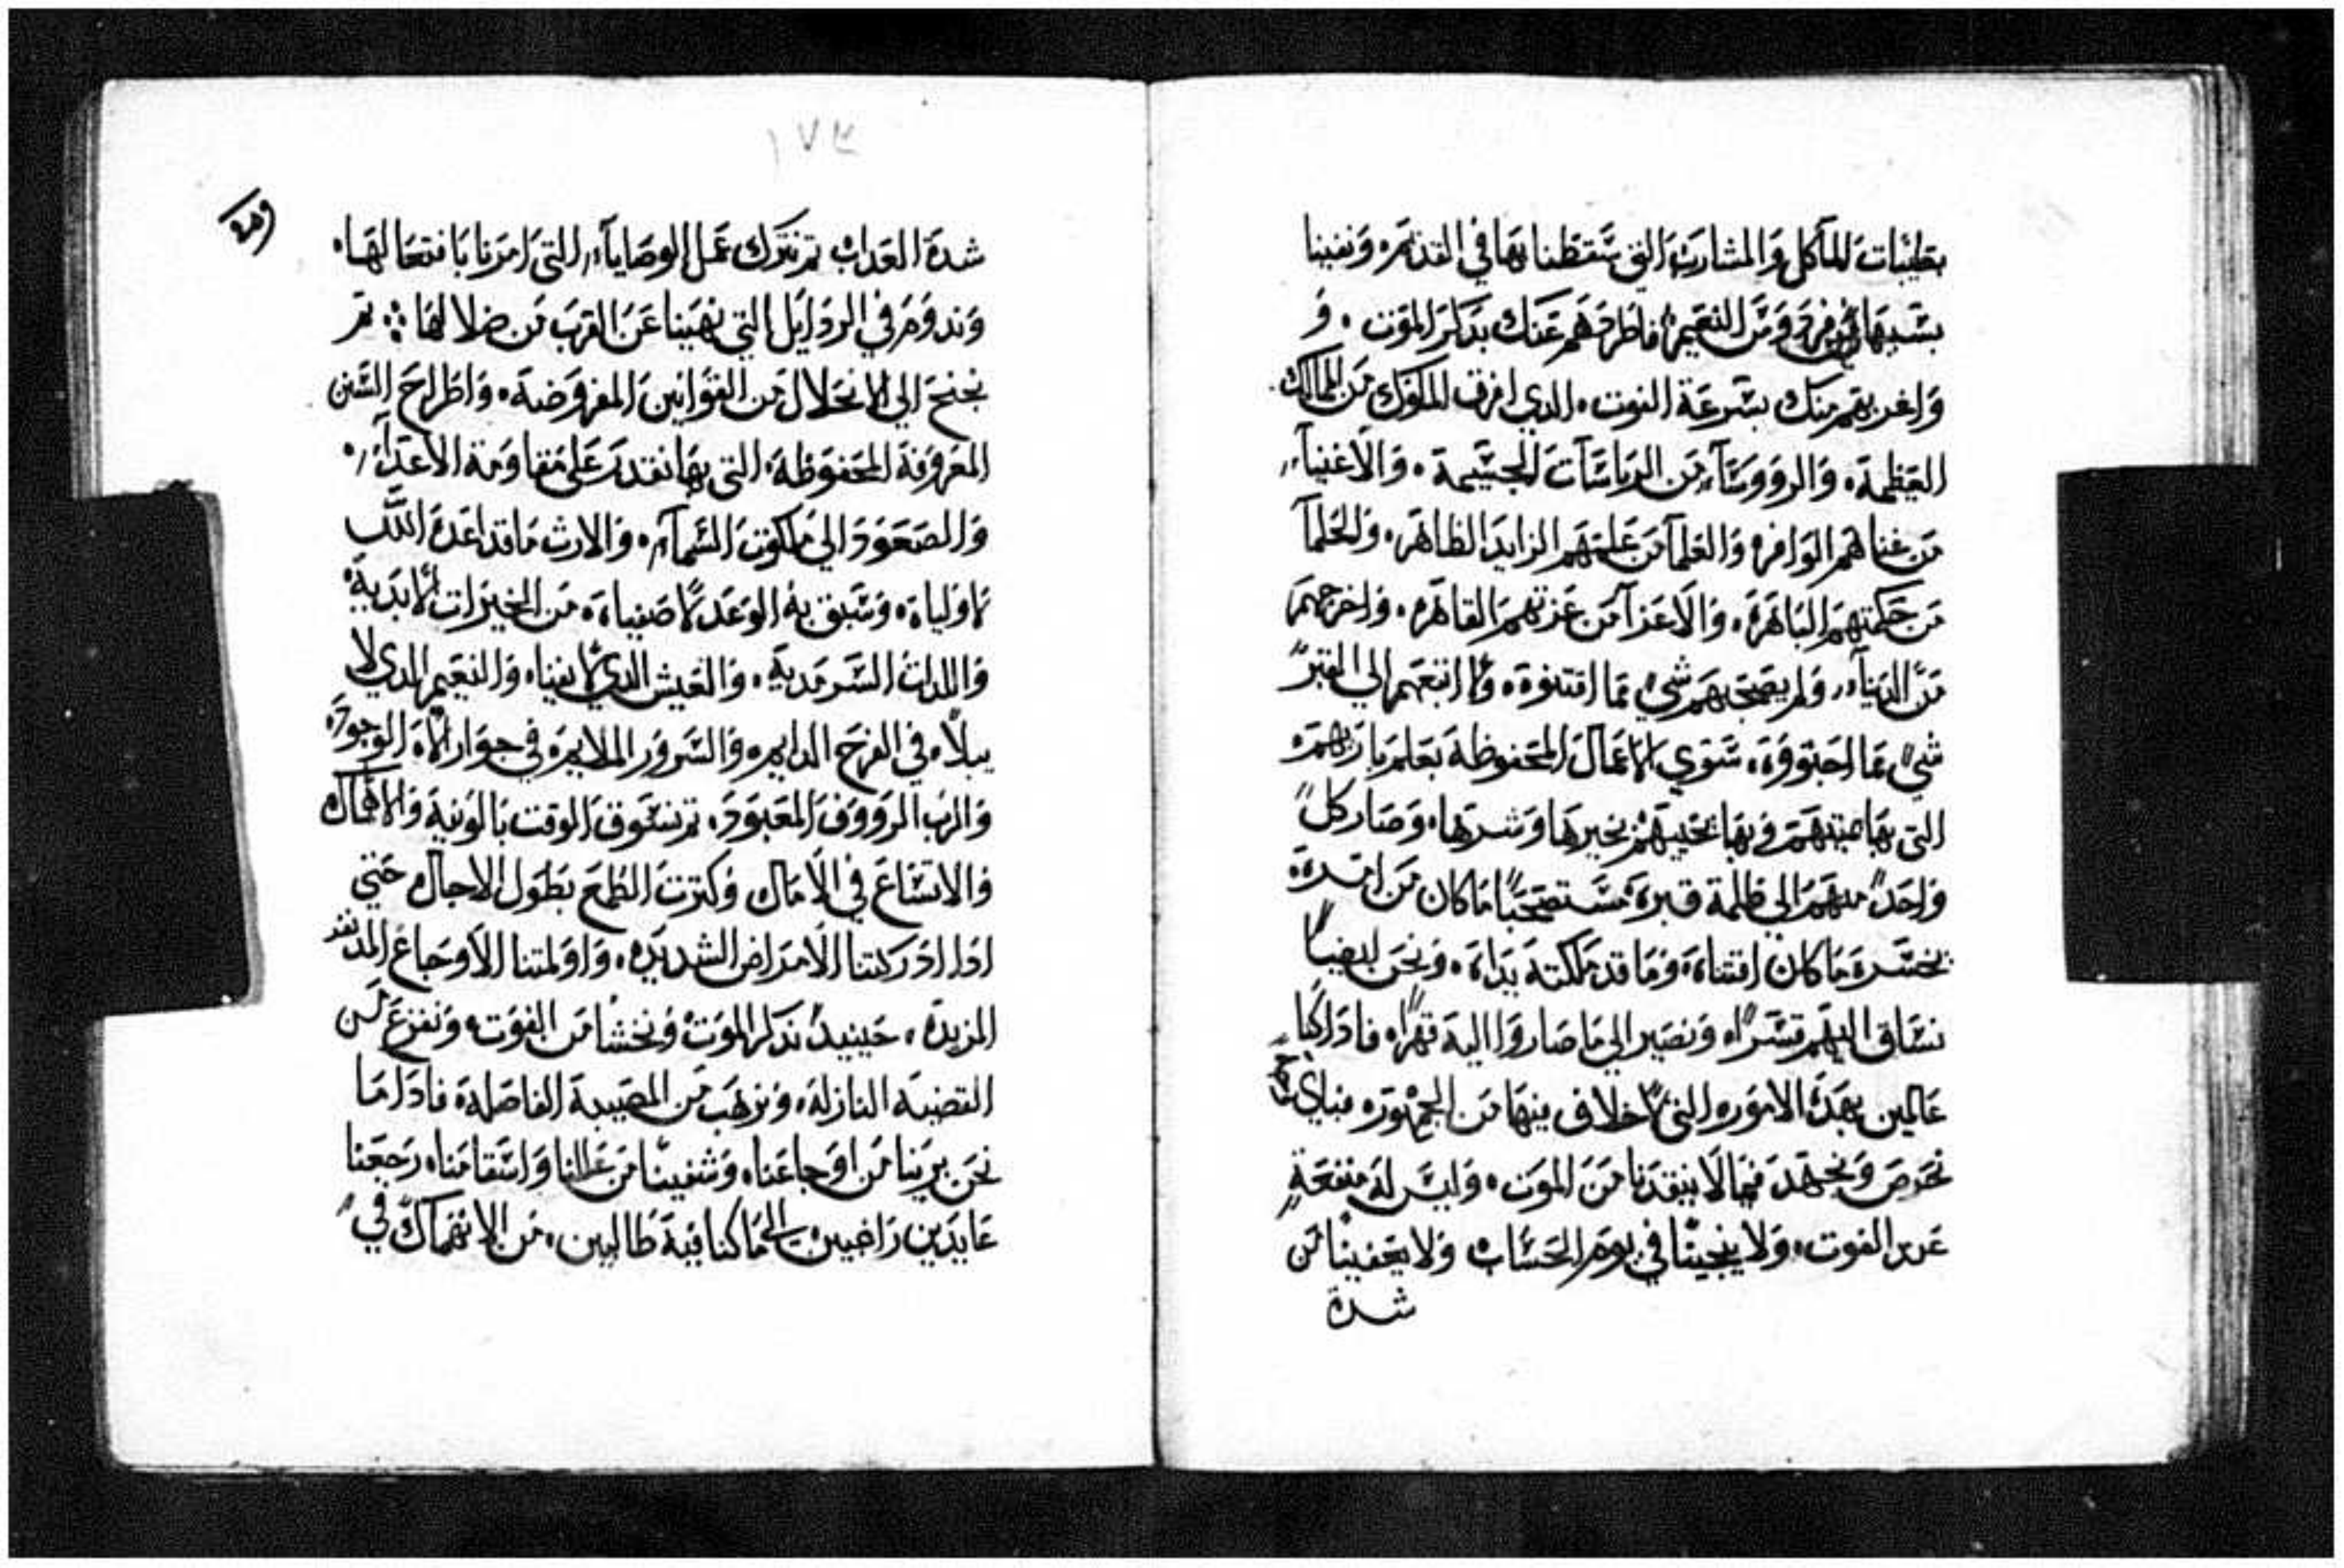 بطيبات المآكل والمشارب التي سقطنا بها في القديم ونفينا
بسببها من فردوس النعيم فاطردهم عنك بذكر الموت و
واغربهم منك بسرعة الفوت الذي افرق الملوك من الممالك
العظيمة والرووسآء من الرياسات الجسيمة والاغنيآء
من غناهم الوافر والعلمآ من علمهم الزايد الظاهر والحلمآ
من حكمتهم الباهرة والاعزآ من عزتهم القاهره واخرجهم
من الدنيآء ولم يصحبهم شيء مما اقتنوه ولا اتبعهم الي القبر
شيء مما احتووه سوي الاعمال المحفوظة بعلم باريهم
التي بها نحييهم بخيرها وشرها وصار كل
واحد منهم الي ظلمة قبره مستصحباً ما كان من امره
نخسره ما كان اقتناه وما قد ملكته يداه ونحن ايضاً
نساق اليهم قسراً ونصير الي ما صاروا اليه قهراً فاذا كنا
عالمين بهذه الامور التي لا خلاف فيها من الجمهور فباي
نحرص ونجتهد فيما لا ينقدنا من الموت وليس له منفعة
عند الفوت ولا ينجينا في يوم الحساب ولا يحفينا من
شدة
١٧٣
شدة العداب ثم نترك عمل الوصايآء التي امرنا بافتعالها
وندوم في الردايل التي نهينا عن القرب من ضلالها ثم
نجنح الي الانحلال من القوانين المفروضة واطراح السنن
المعروفة المحفوظة التي بها نقدر علي مقاومة الاعدآء
والصعود الي ملكوت السمآء والارث ما قد اعده الله
لاولياه وسبق به الوعد لاصفياه من الخيرات الابدية
واللدات السرمدية والعيش الدي لا يفنا والنعيم الدي لا
يبلاء في الفرح الدايم والسرور الملايم في جوار الاه الوجود
والرب الرووف المعبود ثم نسوف الوقت بالونية والاهمال
والاتساع في الامال وكثرت الطمع بطول الاجال حتي
اذا ادركتنا الامراض الشديده واولمتنا الاوجاع
المزيدة حينيد نذكر الموت ونخشا من الفوت ونفزع من
القضية النازلة ونرهب من المصيبة الفاصلة فاذا ما
نحن برينا من اوجاعنا وشفينا من عللنا واسقامنا رجعنا
عايدين راغبين الي ما كنا فيه طالبين من الانهماك في